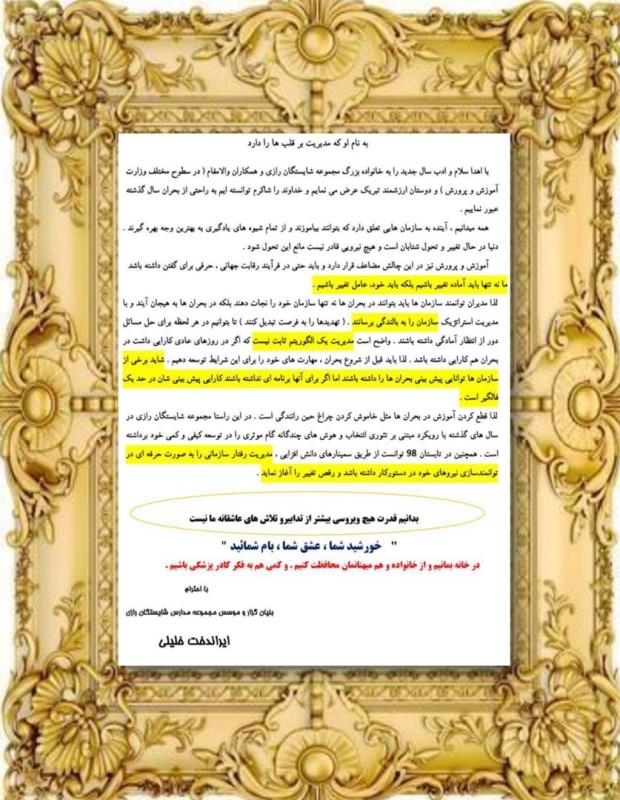 به نام او که مدیریت بر قلب ها را دارد
با اهدا سلام و ادب سال جدید را به خانواده بزرگ مجموعه شایستگان رازی و همکاران والامقام ( در سطوح مختلف وزارت
آموزش و پرورش ) و دوستان ارزشمند تبریک عرض می نمایم و خداوند را شاکرم توانسته ایم به راحتی از بحران سال گذشته
عبور نماییم .
همه میدانیم ، آینده به سازمان هایی تعلق دارد که بتوانند بیاموزند و از تمام شیوه های یادگیری به بهترین وجه بهره گیرند .
دنیا در حال تغییر و تحول شتابان است و هیچ نیرویی قادر نیست مانع این تحول شود .
آموزش و پرورش نیز در این چالش مضاعف قرار دارد و باید حتی در فرآیند رقابت جهانی ، حرفی برای گفتن داشته باشد
ما نه تنها باید آماده تغییر باشیم بلکه باید خود، عامل تغییر باشیم .
لذا مدیران توانمند سازمان ها باید بتوانند در بحران ها نه تنها سازمان خود را نجات دهند بلکه در بحران ها به هیجان آیند و با
مدیریت استراتژیک سازمان را به بالندگی برسانند . ( تهدیدها را به فرصت تبدیل کنند ) تا بتوانیم در هر لحظه برای حل مسائل
دور از انتظار آمادگی داشته باشند . واضح است مدیریت یک الگوریتم ثابت نیست که اگر در روزهای عادی کارایی داشت در
بحران هم کارایی داشته باشد . لذا باید قبل از شروع بحران ، مهارت های خود را برای این شرایط توسعه دهیم . شاید برخی از
سازمان ها توانایی پیش بینی بحران ها را داشته باشند اما اگر برای آنها برنامه ای نداشته باشند کارایی پیش بینی شان در حد یک
فالگیر است .
لذا قطع کردن آموزش در بحران ها مثل خاموش کردن چراغ حین رانندگی است . در این راستا مجموعه شایستگان رازی در
سال های گذشته با رویکرد مبتنی بر تئوری انتخاب و هوش های چندگانه گام موثری را در توسعه کیفی و کمی خود برداشته
است . همچنین در تابستان 98 توانست از طریق سمینارهای دانش افزایی ، مدیریت رفتار سازمانی را به صورت حرفه ای در
توانمندسازی نیروهای خود در دستورکار داشته باشد و رقص تغییر را آغاز نماید .
بدانیم قدرت هیچ ویروسی بیشتر از تدابیرو تلاش های عاشقانه ما نیست
" خورشید شما ، عشق شما ، بام شمائید "
در خانه بمانیم و از خانواده و هم میهنانمان محافظت کنیم . و کمی هم به فکر کادر پزشکی باشیم .
با احترام
بنیان گزار و موسس مجموعه مدارس شایستگان رازی
ایراندخت خلیلی